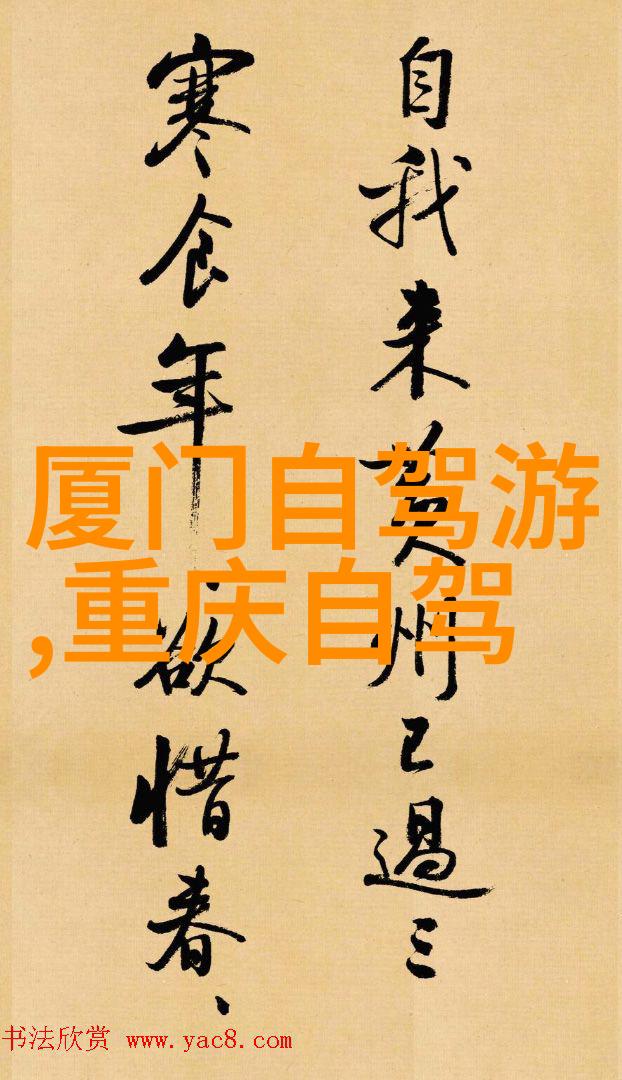 自我来黄州已過三
寒食年年欲惜春、
厦门自驾游
,重庆自驾
书法欣赏 www.yac8.com